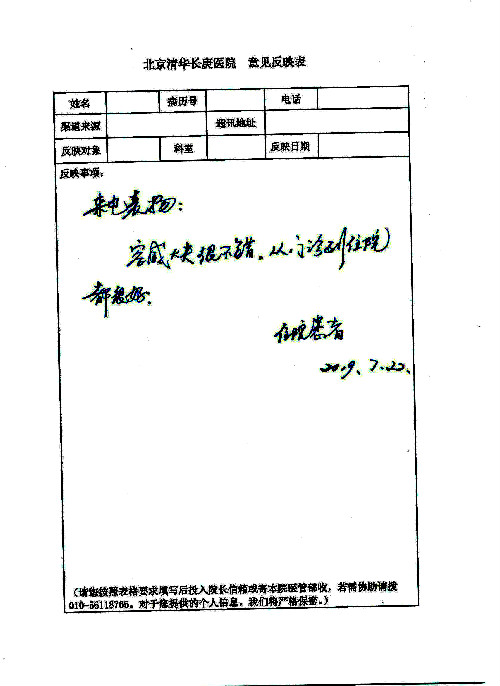 北京清华长庚医院 意见反映表
姓名 病历号 电话
渠道来源 通讯地址
反映对象 科室 反映日期
反映事项：
来电表扬：
容威大夫很不错，从门诊到住院
都很好。
住院患者
2019、7.22、
（请您按照表格要求填写后投入院长信箱或寄本院医管部收，若需协助请拨
010-56118766。对于您提供的个人信息，我们将严格保密。）